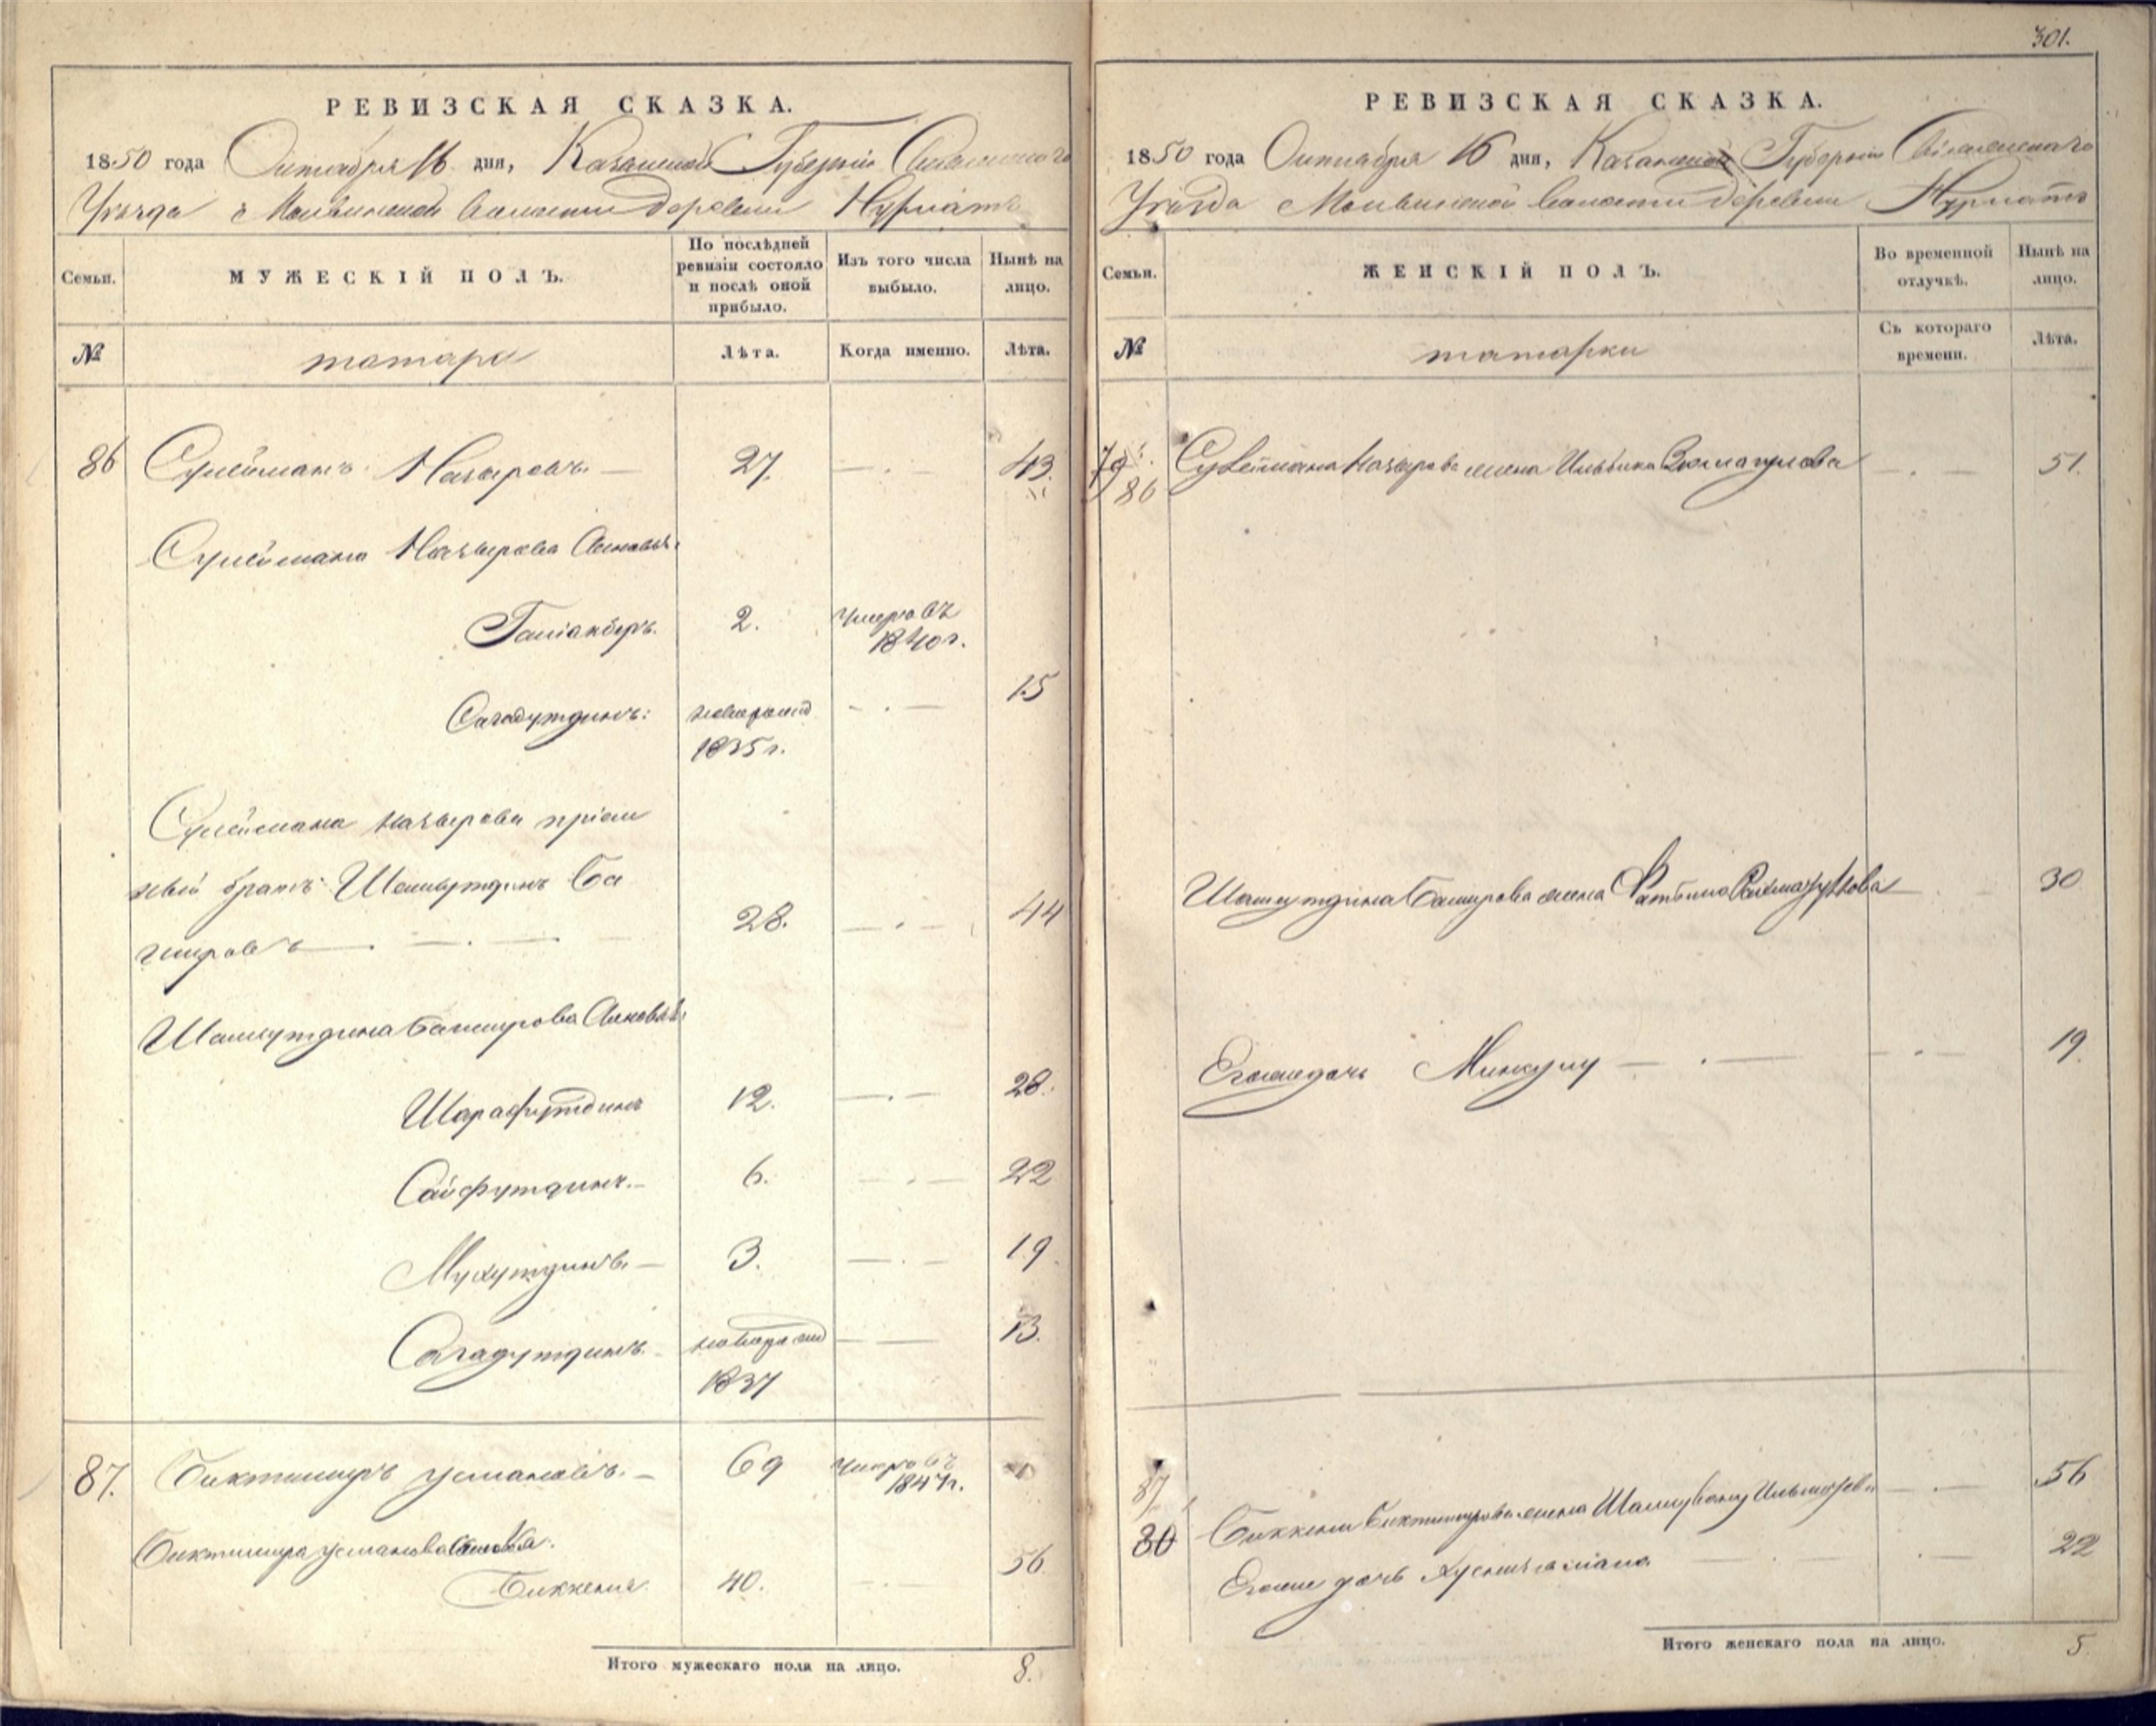 301.
РЕВИЗСКАЯ СКАЗКА.
1850 года Октября 16 дня, Казанской Губернiи
Уѣзда Волости деревни Нурлатъ
Семьи. МУЖЕСКIЙ ПОЛЪ. По послѣдней ревизiи состояло и послѣ оной прибыло. Изъ того числа выбыло. Нынѣ на лицо.
№ татара Лѣта. Когда именно. Лѣта.
86 Сулейманъ Назыровъ. 27. 43.
Сулеймана Назырова Сыновья:
2. умеръ въ 1840 г.
Сагадутдинъ: новорожд 1835 г. 15
Сулеймана назырова прiем
ный братъ Шамшутдинъ Ба
шировъ 28. 44
Шамшутдина Баширова Сыновья:
Шарафутдинъ 12. 28.
Сайфутдинъ. 6. 22
Мухутдинъ. 3. 19
Сагадутдинъ. новорожд 1837 13.
87. Биктимиръ Усмановъ. 69 умеръ въ 1847 г.
Биктимира Усманова
Биккеня 40. 56
Итого мужескаго пола на лицо. 8.
РЕВИЗСКАЯ СКАЗКА.
1850 года Октября 16 дня, Казанской Губернiи
Уѣзда Волости деревни Нурлатъ
Семьи. ЖЕНСКIЙ ПОЛЪ. Во временной отлучкѣ. Нынѣ на лицо.
№ татарки Съ котораго времени. Лѣта.
79 86 Сулеймана Назырова жена 51.
Шамшутдина Баширова жена 30
Его же дочь 19
87 80 Биккени Биктимирова жена 56
Его же дочь 22
Итого женскаго пола на лицо. 5.